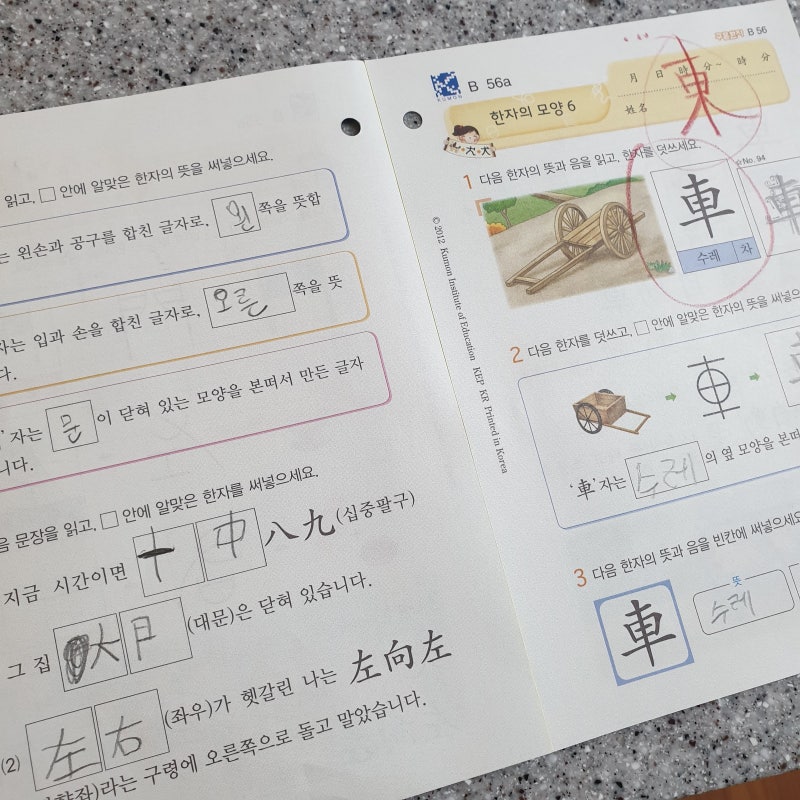 읽고, □ 안에 알맞은 한자의 뜻을 써넣으세요.
는 왼손과 공구를 합친 글자로, 왼 쪽을 뜻합
자는 입과 손을 합친 글자로, 오른 쪽을 뜻
다.
자는 문 이 닫혀 있는 모양을 본떠서 만든 글자
니다.
문장을 읽고, □ 안에 알맞은 한자를 써넣으세요.
지금 시간이면 十 中 八九(십중팔구)
그 집 大 門 (대문)은 닫혀 있습니다.
(2) 左 右 (좌우)가 헷갈린 나는 左向左
라는 구령에 오른쪽으로 돌고 말았습니다.
© 2012 Kumon Institute of Education KEP KR Printed in Korea
B 56
KUMON
B 56a
한자의 모양 6
月 日 時 分~ 時 分
姓名
東
1 다음 한자의 뜻과 음을 읽고, 한자를 덧쓰세요.
☆No. 94
車
수레 차
2 다음 한자를 덧쓰고, □ 안에 알맞은 한자의 뜻을 써넣으
‘車’자는 수레 의 옆 모양을 본떠
3 다음 한자의 뜻과 음을 빈칸에 써넣으세요
車
뜻
수레